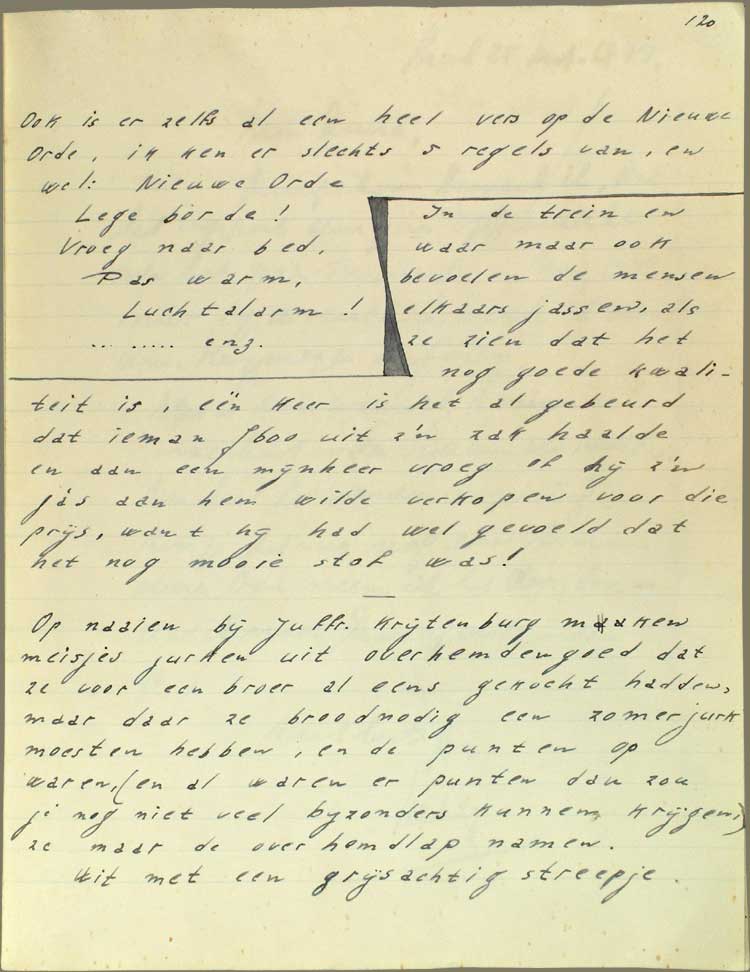 120
Ook is er zelfs al een heel vers op de Nieuwe
Orde, ik ken er slechts 5 regels van, en
wel: Nieuwe Orde
Lege borde!
Vroeg naar bed,
Pas warm,
Luchtalarm!
.. ..... enz.
In de trein en
waar maar ook
bevoelen de mensen
elkaars jassen, als
ze zien dat het
nog goede kwali-
teit is, eën keer is het al gebeurd
dat ieman ƒ600 uit z'n zak haalde
en aan een mynheer vroeg of hÿ z'n
jas aan hem wilde verkopen voor die
prÿs, want hÿ had wel gevoeld dat
het nog mooie stof was!
Op naaien bÿ Juffr. Krÿtenburg maaken
meisjes jurken uit overhemdengoed dat
ze voor een broer al eens gekocht hadden,
maar daar ze broodnodig een zomerjurk
moesten hebben, en de punten op
waren, (en al waren er punten dan zou
je nog niet veel byzonders kunnen krÿgen,)
ze maar de overhemdlap namen.
Wit met een grÿsachtig streepje.